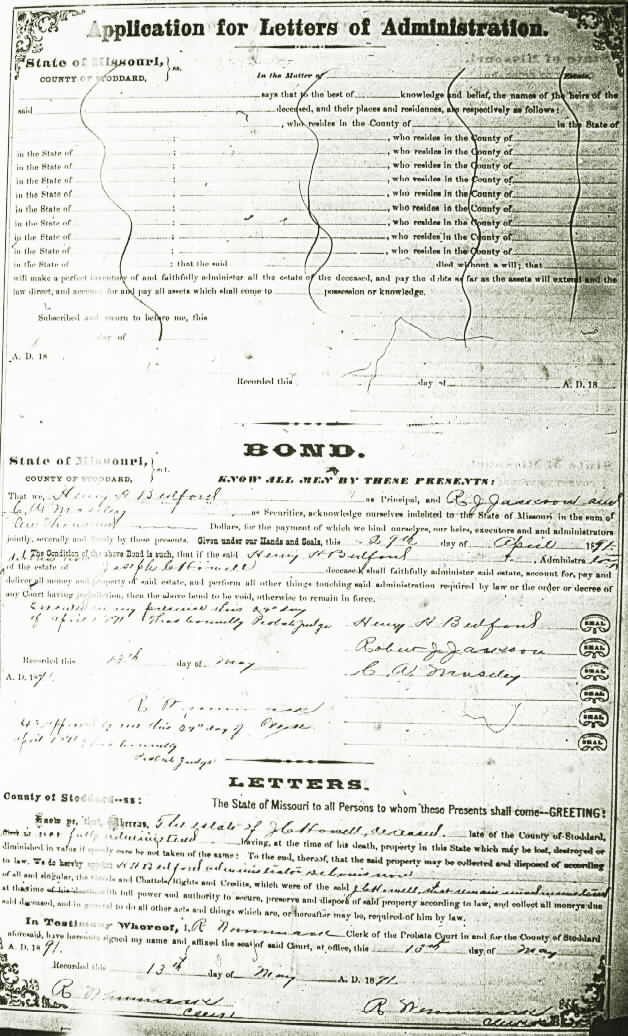 Application for Letters of Administration.
State of Missouri, } ss.
COUNTY OF STODDARD,
In the Matter of Estate.
says that to the best of knowledge and belief, the names of the heirs of the
said deceased, and their places and residences, are respectively as follows:
, who resides in the County of in the State of
, who resides in the County of
in the State of ; , who resides in the County of
in the State of ; , who resides in the County of
in the State of ; , who resides in the County of
in the State of ; , who resides in the County of
in the State of ; , who resides in the County of
in the State of ; , who resides in the County of
in the State of ; , who resides in the County of
in the State of ; , who resides in the County of
in the State of ; that the said died without a will; that
will make a perfect inventory of and faithfully administer all the estate of the deceased, and pay the debts as far as the assets will extend and the
law direct, and account for and pay all assets which shall come to possession or knowledge.
Subscribed and sworn to before me, this
day of
A. D. 18
Recorded this day of A. D. 18
BOND.
State of Missouri, } sct.
COUNTY OF STODDARD,
KNOW ALL MEN BY THESE PRESENTS:
That we, Henry H Bedford as Principal, and R J Jackson and
C. A. Mosley as Securities, acknowledge ourselves indebted to the State of Missouri in the sum of
Thousand Dollars, for the payment of which we bind ourselves, our heirs, executors and administrators
jointly, severally and firmly by these presents. Given under our Hands and Seals, this 29th day of April 1891.
The Condition of the above Bond is such, that if the said Henry H Bedford Administrator
of the estate of Joseph C Howell deceased, shall faithfully administer said estate, account for, pay and
deliver all money and property of said estate, and perform all other things touching said administration required by law or the order or decree of
any Court having jurisdiction, then the above bond to be void, otherwise to remain in force.
Executed in my presence this 29th day
of April 1891 Thos Connelly Probate Judge
Henry H Bedford SEAL
Robert J Jackson SEAL
Recorded this 13th day of May
C. A. Mosley SEAL
A. D. 1891.
SEAL
R
approved by me this 29th day of
SEAL
April 1891 Thos Connelly
SEAL
Probate Judge
LETTERS.
County of Stoddard--ss:
The State of Missouri to all Persons to whom these Presents shall come--GREETING:
Know ye, that Whereas, The estate of J C Howell, deceased. late of the County of Stoddard,
is not fully administered having, at the time of his death, property in this State which may be lost, destroyed or
diminished in value if speedy care be not taken of the same: To the end, thereof, that the said property may be collected and disposed of according
to law. We do hereby appoint H H Bedford administrator de bonis non
of all and singular, the Goods and Chattels, Rights and Credits, which were of the said J C Howell, that remain unadministered
at the time of his death with full power and authority to secure, preserve and dispose of said property according to law, and collect all moneys due
said deceased, and in general to do all other acts and things which are, or hereafter may be, required of him by law.
In Testimony Whereof, I, R Clerk of the Probate Court in and for the County of Stoddard
aforesaid, have hereunto signed my name and affixed the seal of said Court, at office, this 13th day of May
A. D. 1891.
Recorded this 13th day of May A. D. 1891.
R
Clerk
R
Clerk